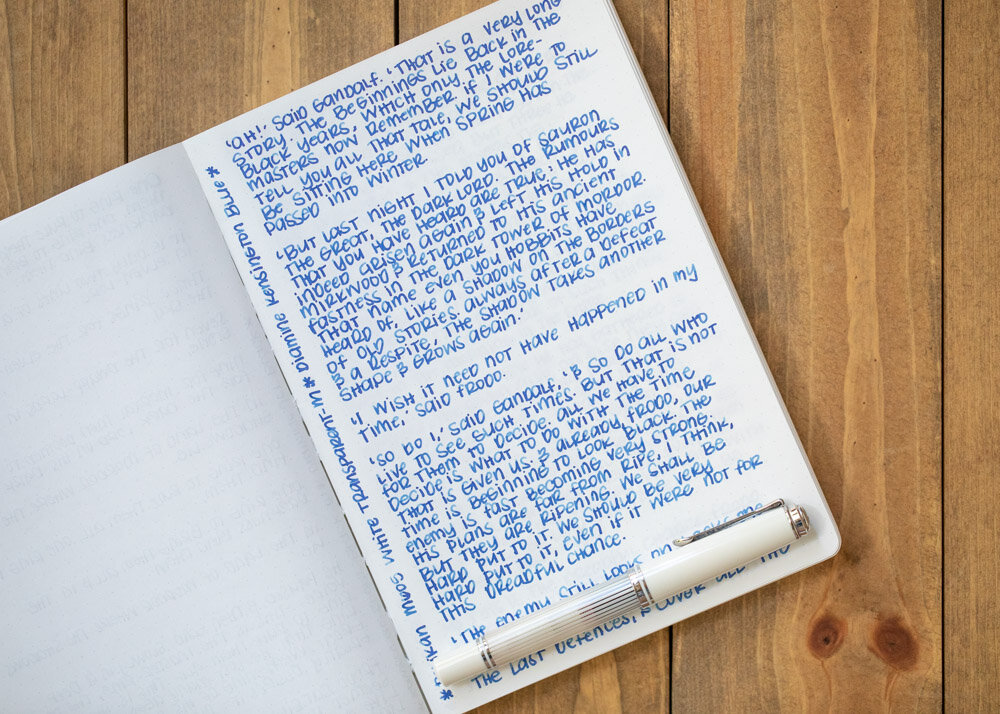 'AH!' SAID GANDALF. 'THAT IS A VERY LONG
STORY. THE BEGINNINGS LIE BACK IN THE
BLACK YEARS, WHICH ONLY THE LORE-
MASTERS NOW REMEMBER. IF I WERE TO
TELL YOU ALL THAT TALE, WE SHOULD STILL
BE SITTING HERE WHEN SPRING HAS
PASSED INTO WINTER.
'BUT LAST NIGHT I TOLD YOU OF SAURON
THE GREAT, THE DARK LORD. THE RUMOURS
THAT YOU HAVE HEARD ARE TRUE: HE HAS
INDEED ARISEN AGAIN & LEFT HIS HOLD IN
MIRKWOOD & RETURNED TO HIS ANCIENT
FASTNESS IN THE DARK TOWER OF MORDOR.
THAT NAME EVEN YOU HOBBITS HAVE
HEARD OF, LIKE A SHADOW ON THE BORDERS
OF OLD STORIES. ALWAYS AFTER A DEFEAT
& A RESPITE, THE SHADOW TAKES ANOTHER
SHAPE & GROWS AGAIN.'
'I WISH IT NEED NOT HAVE HAPPENED IN MY
TIME,' SAID FRODO.
'SO DO I,' SAID GANDALF. '& SO DO ALL WHO
LIVE TO SEE SUCH TIMES. BUT THAT IS NOT
FOR THEM TO DECIDE. ALL WE HAVE TO
DECIDE IS WHAT TO DO WITH THE TIME
THAT IS GIVEN US. & ALREADY, FRODO, OUR
TIME IS BEGINNING TO LOOK BLACK. THE
ENEMY IS FAST BECOMING VERY STRONG.
HIS PLANS ARE FAR FROM RIPE, I THINK,
BUT THEY ARE RIPENING. WE SHALL BE
HARD PUT TO IT. WE SHOULD BE VERY
HARD PUT TO IT, EVEN IF IT WERE NOT FOR
THIS DREADFUL CHANCE.
'THE ENEMY STILL LACKS
THE LAST DEFENCES, & COVER ALL THE
* M605 WHITE TRANSPARENT-M * DIAMINE KENSINGTON BLUE *